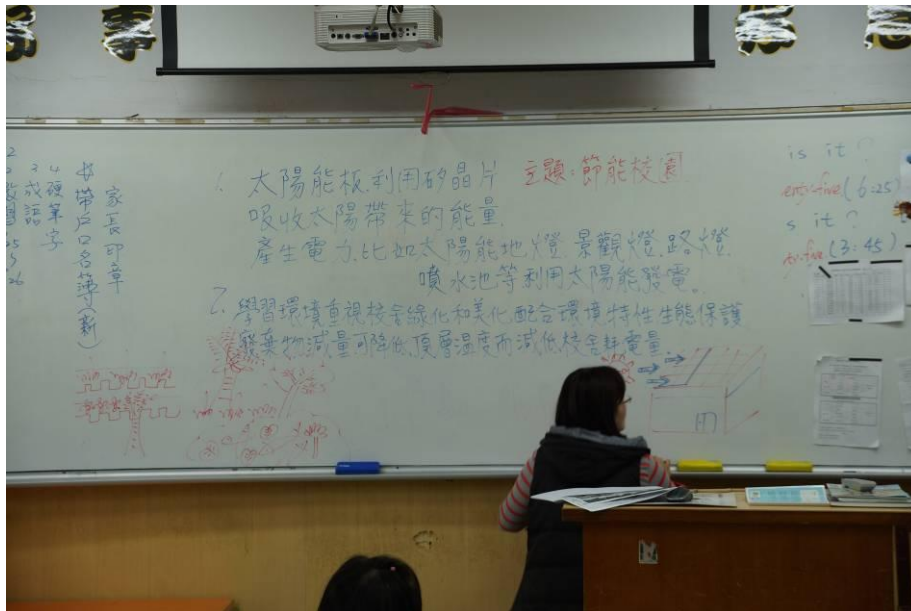 主題:節能校園
1. 太陽能板利用矽晶片
吸收太陽帶來的能量.
產生電力.比如太陽能地燈.景觀燈.路燈.
噴水池等利用太陽能發電。
2. 學習環境重視校舍綠化和美化配合環境特性生態保護
廢棄物減量可降低頂層溫度而減低校舍耗電量
家長印章
帶戶口名簿(新)
4硬筆字
3成語
is it?
(6:25)
s it?
(3:45)